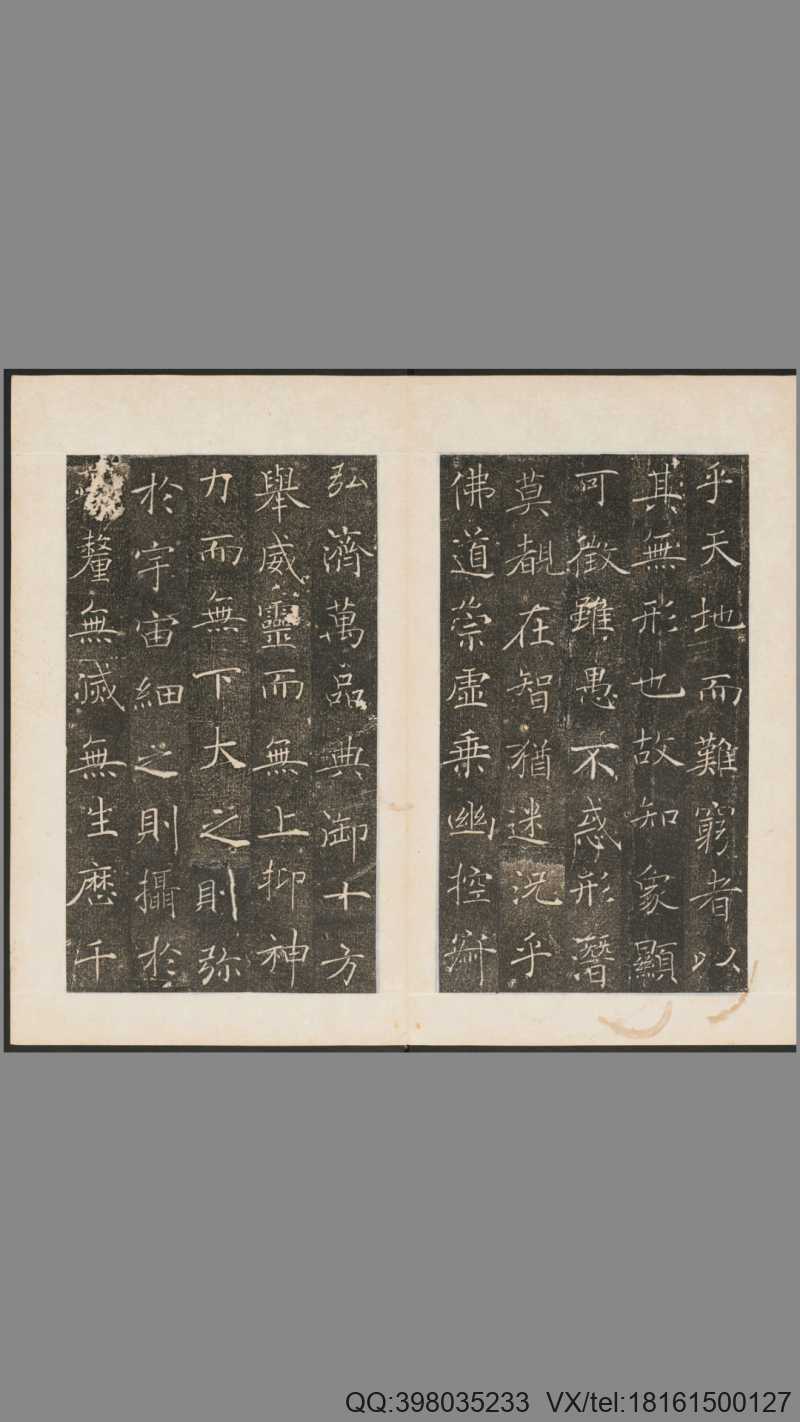 乎天地而難窮者以
其無形也故知象顯
可徵雖愚不惑形潛
莫覩在智猶迷況乎
佛道崇虛乗幽控
弘濟萬品典御十方
舉威靈而無上抑神
力而無下大之則弥
於宇宙細之則攝於
釐無滅無生歷千
QQ:398035233 VX/tel:18161500127